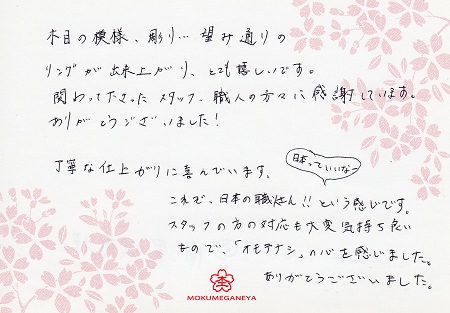 木目の模様、彫り… 望み通りの
リングが出来上がり、とても嬉しいです。
関わって下さった スタッフ、職人の方々に感謝しています。
ありがとうございました!
丁寧な仕上がりに喜んでいます。
日本っていいなー
これぞ、日本の職人!! という感じです。
スタッフの方の対応も大変気持ち良い
もので、「オモテナシ」の心を感じました。
ありがとうございいました。
MOKUMEGANEYA